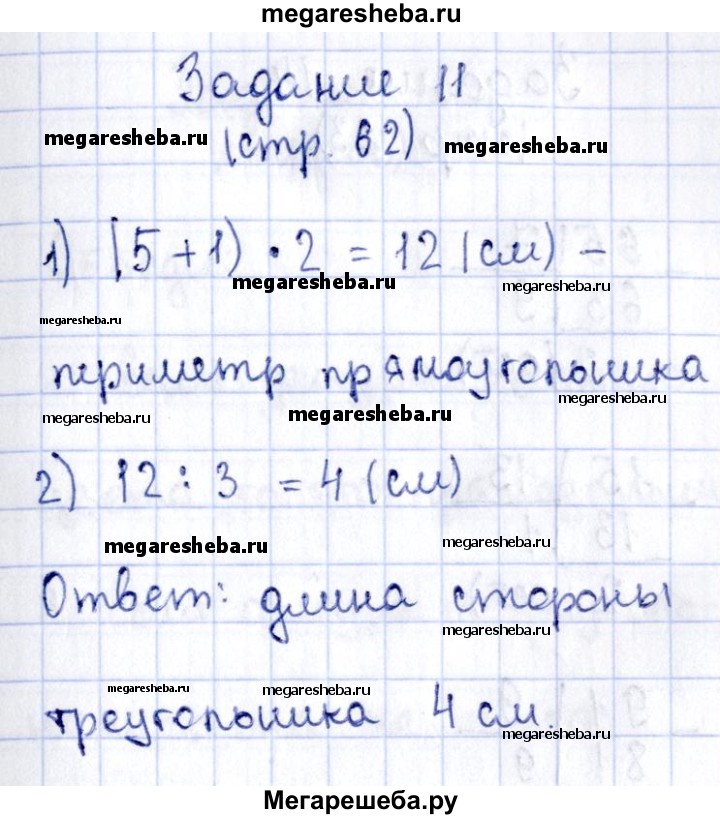 megaresheba.ru
Задание 11
megaresheba.ru (стр. 62) megaresheba.ru
1) (5+1) · 2 = 12 (см) –
megaresheba.ru megaresheba.ru
megaresheba.ru
периметр прямоугольника
megaresheba.ru megaresheba.ru megaresheba.ru
2) 12 : 3 = 4 (см)
megaresheba.ru megaresheba.ru
Ответ: длина стороны
megaresheba.ru
megaresheba.ru megaresheba.ru
треугольника 4 см.
megaresheba.ru
Мегарешеба.ру